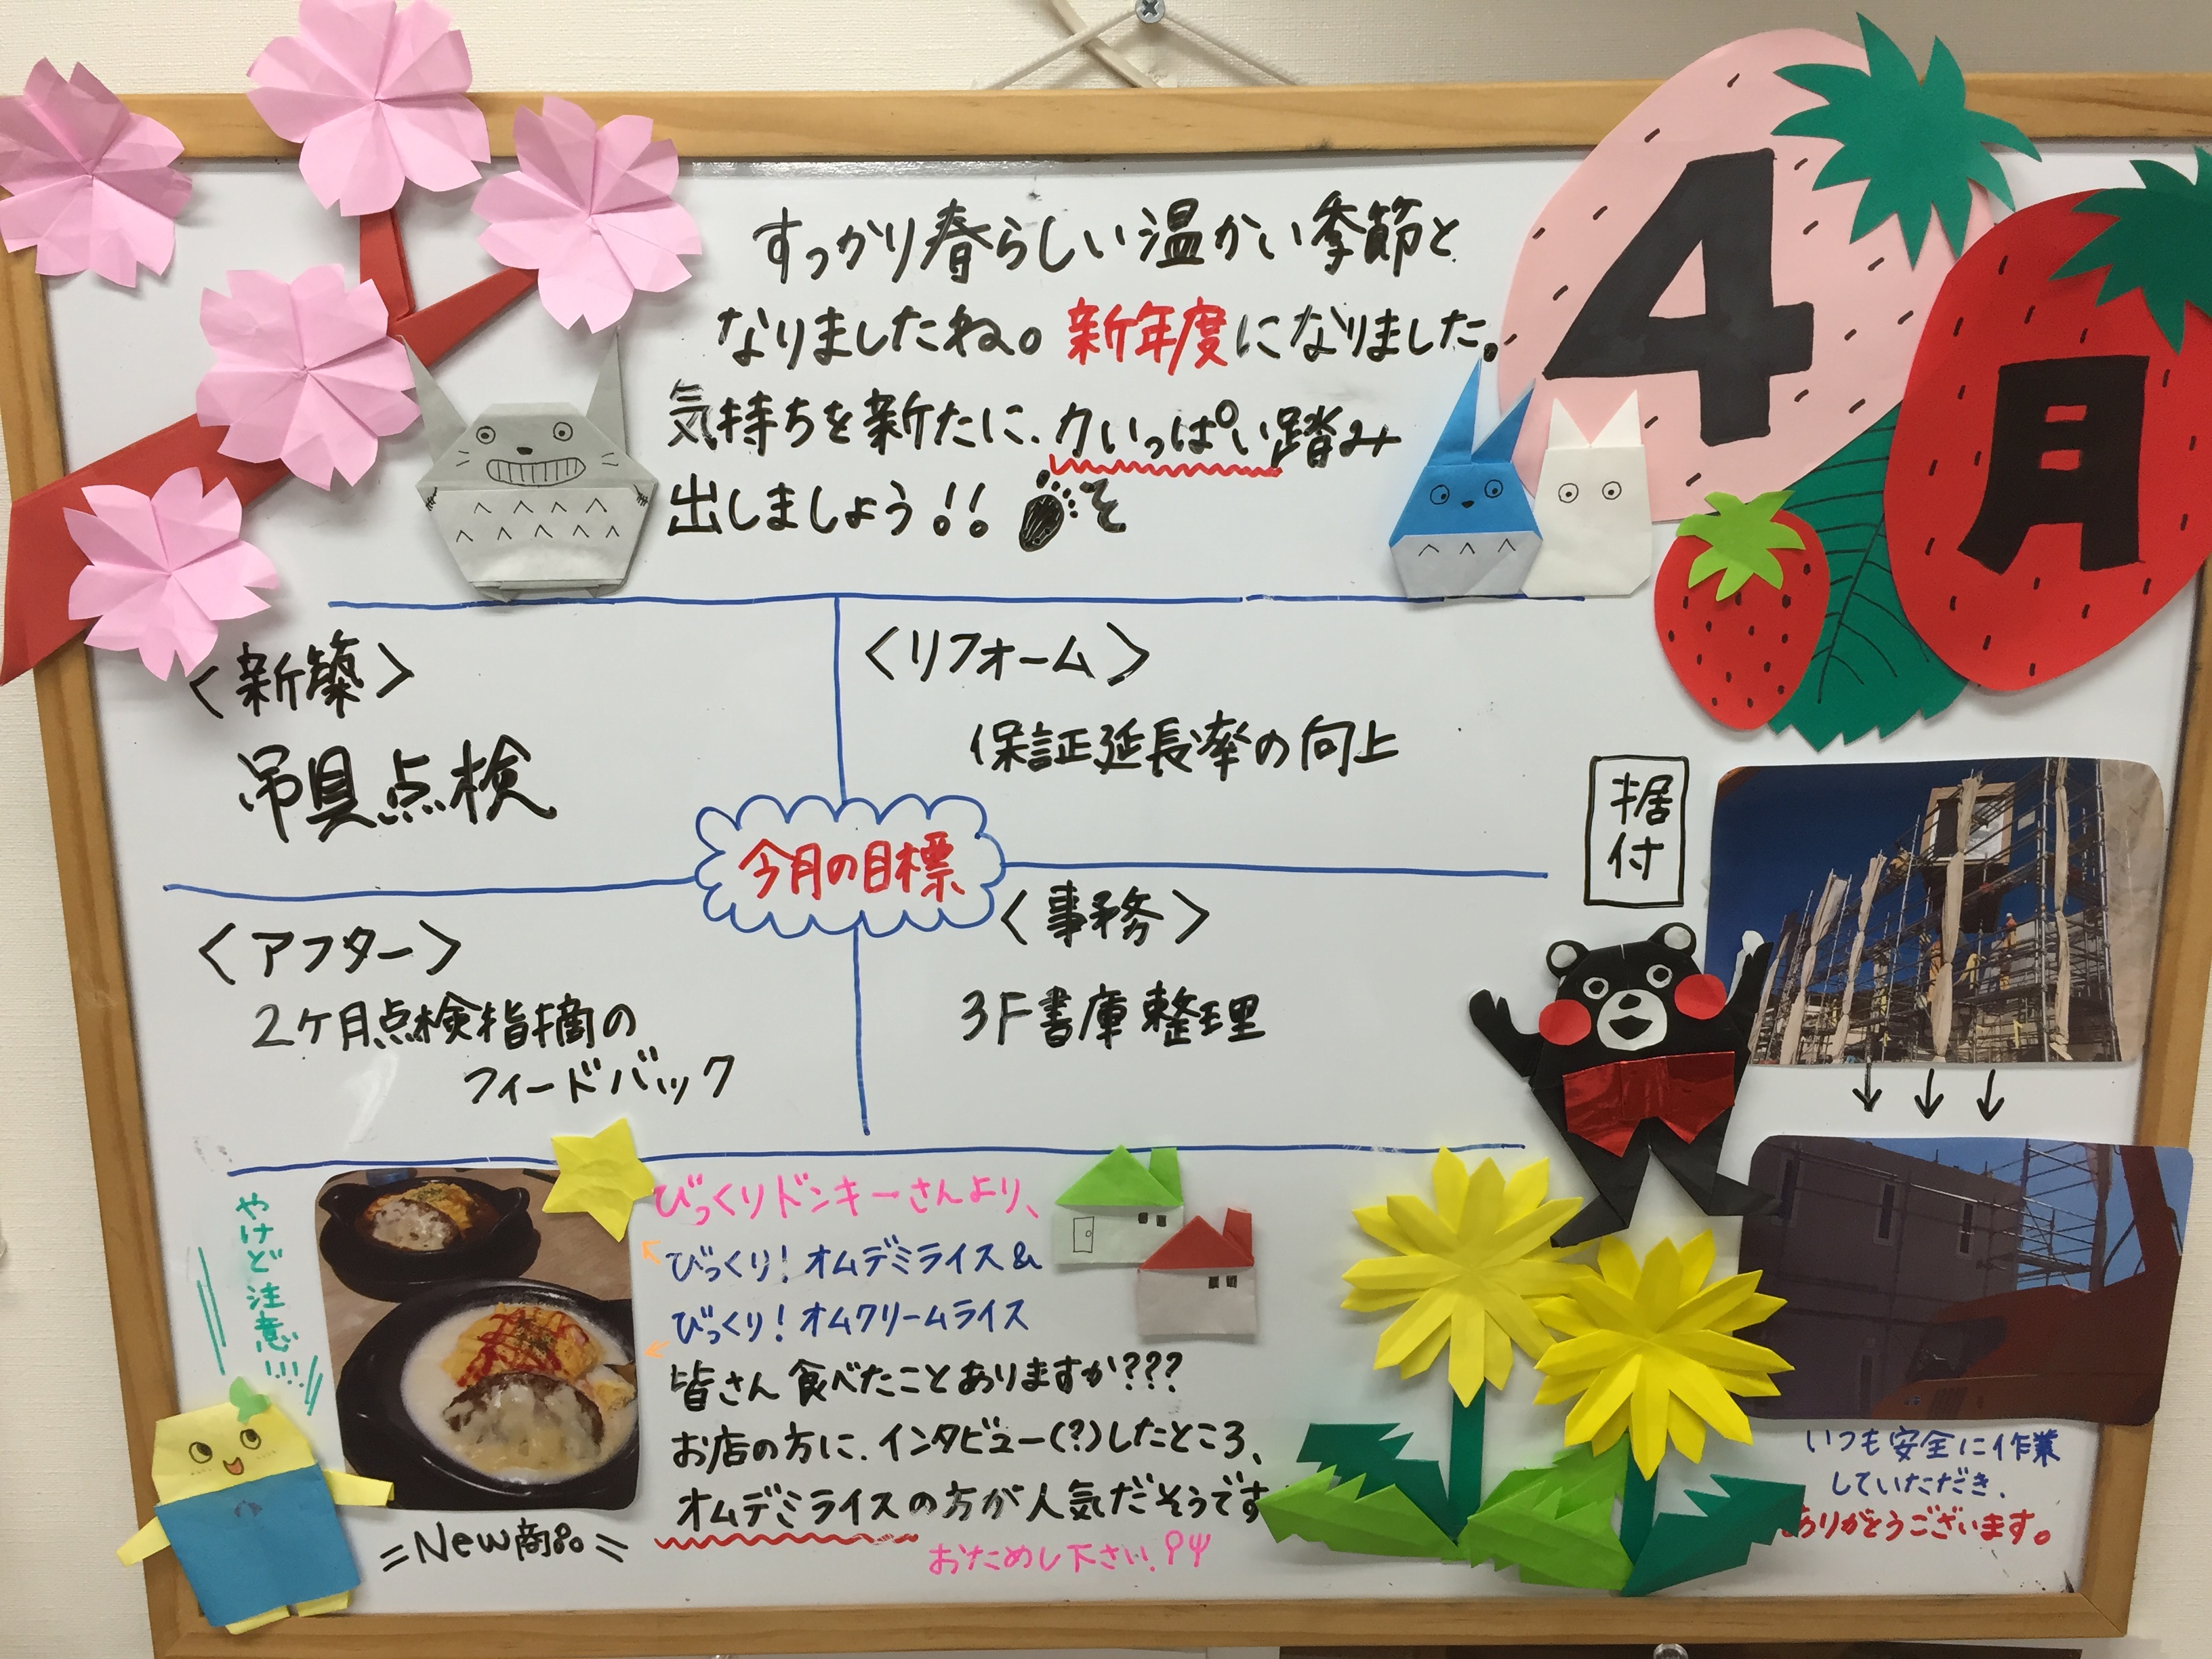 すっかり春らしい温かい季節と
なりましたね。新年度になりました。
気持ちを新たに、力いっぱい踏み
出しましょう!!
4月
<新築>
吊具点検
<リフォーム>
保証延長率の向上
今月の目標
<アフター>
2ケ月点検指摘の
フィードバック
<事務>
3F書庫整理
据付
↓↓↓
いつも安全に作業
していただき、
ありがとうございます。
やけど注意!!!
=New商品=
びっくりドンキーさんより、
びっくり!オムデミライス&
びっくり!オムクリームライス
皆さん食べたことありますか???
お店の方に、インタビュー(?)したところ、
オムデミライスの方が人気だそうです
おためし下さい!